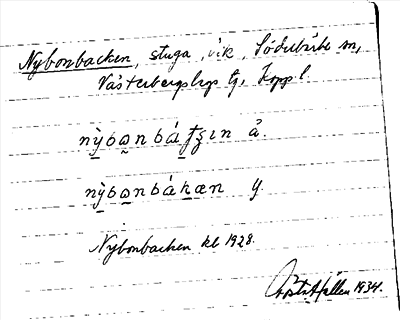 Nybonbacken, stuga, vik, Söderbärke sn,
Västerbergslags tg, Kopp l.
nỳbo̤nbáƭʒın å.
nỳbo̤nbákæn y.
Nybonbacken kb 1928.
Gösta Hallén 1934.